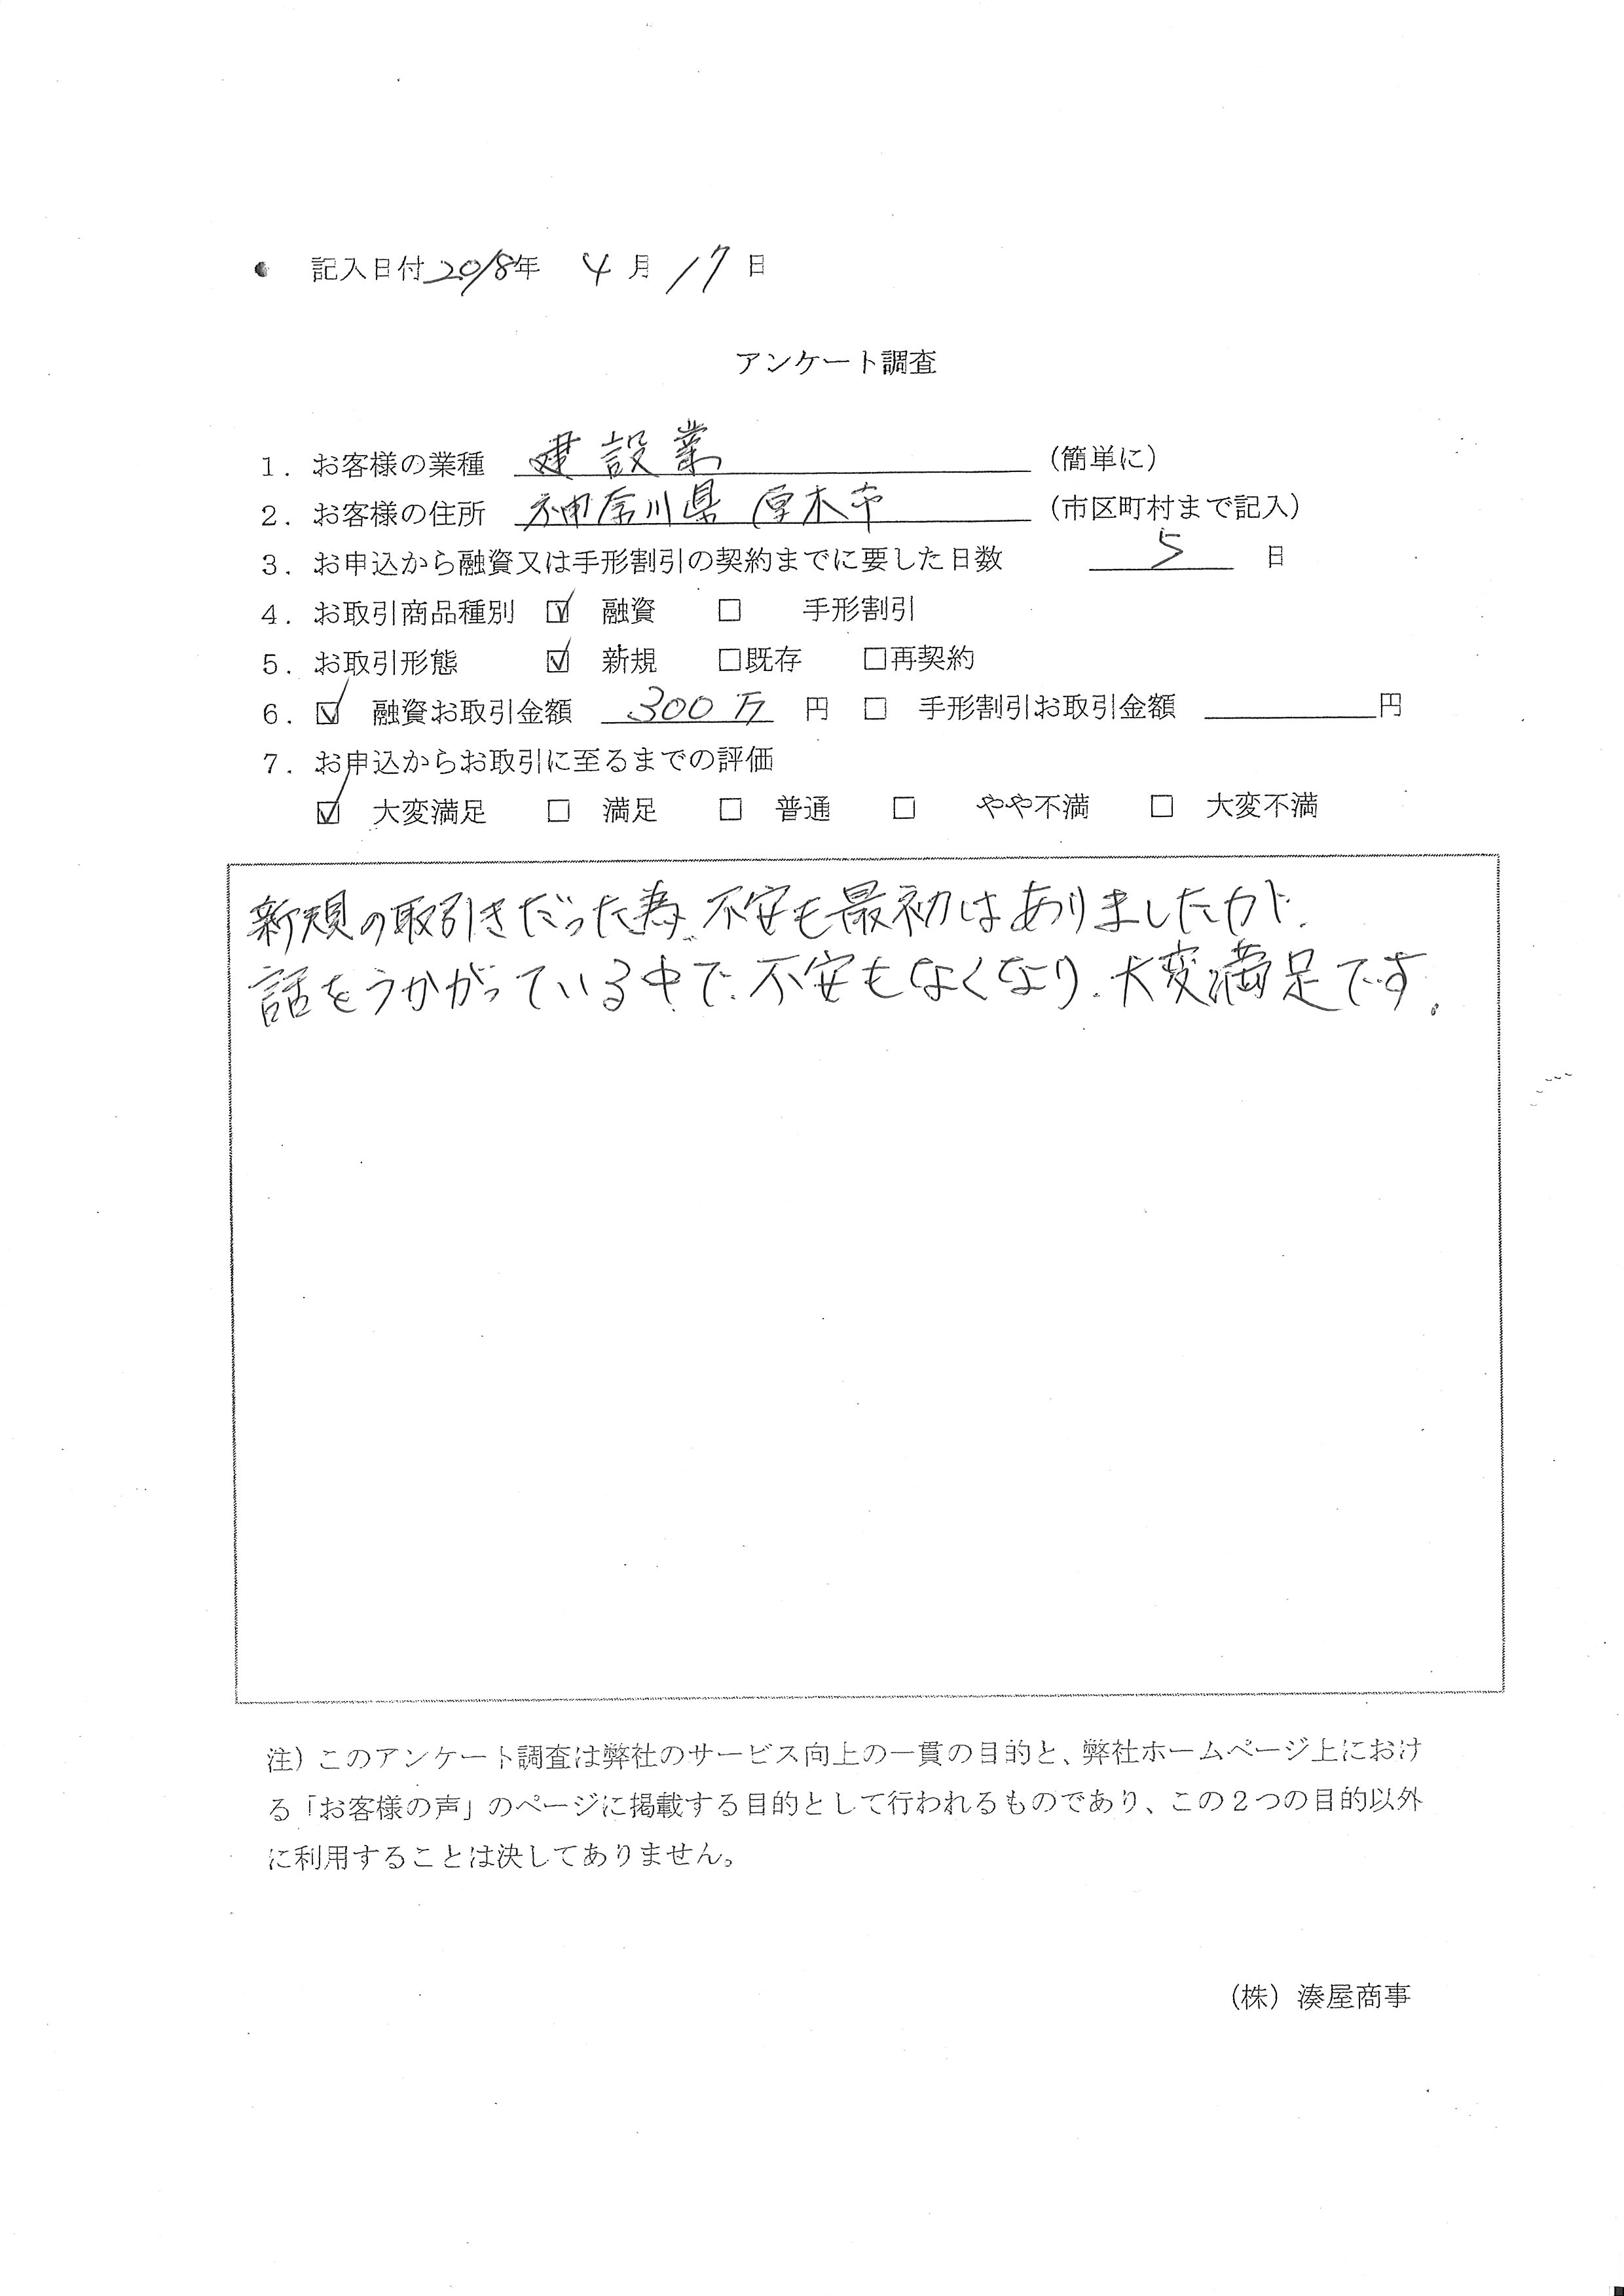 記入日付 2018年 4月 17日
アンケート調査
1. お客様の業種 建設業 (簡単に)
2. お客様の住所 神奈川県 厚木市 (市区町村まで記入)
3. お申込から融資又は手形割引の契約までに要した日数 5 日
4. お取引商品種別 ☑ 融資 □ 手形割引
5. お取引形態 ☑ 新規 □既存 □再契約
6. ☑ 融資お取引金額 300万 円 □ 手形割引お取引金額 円
7. お申込からお取引に至るまでの評価
☑ 大変満足 □ 満足 □ 普通 □ やや不満 □ 大変不満
新規の取引きだった為、不安も最初はありましたが、
話をうかがっている中で、不安もなくなり、大変満足です。
注）このアンケート調査は弊社のサービス向上の一貫の目的と、弊社ホームページ上におけ
る「お客様の声」のページに掲載する目的として行われるものであり、この2つの目的以外
に利用することは決してありません。
（株）湊屋商事